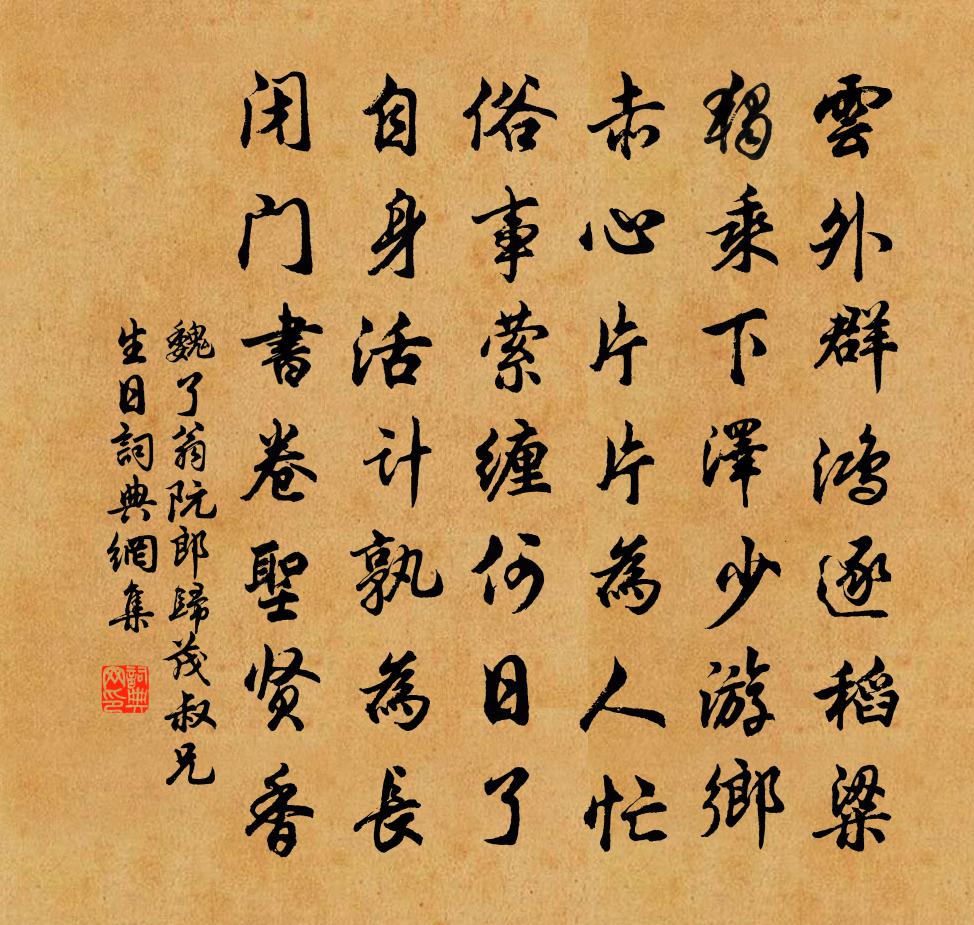 雲外群鸿逐稻粱
獨乘下澤少游鄉
赤心片片為人忙
俗事萦缠何日了
自身活计孰為長
闭门書卷聖贤香
魏了翁阮郎歸茂叔兄
生日詞典網集
詞典
网印